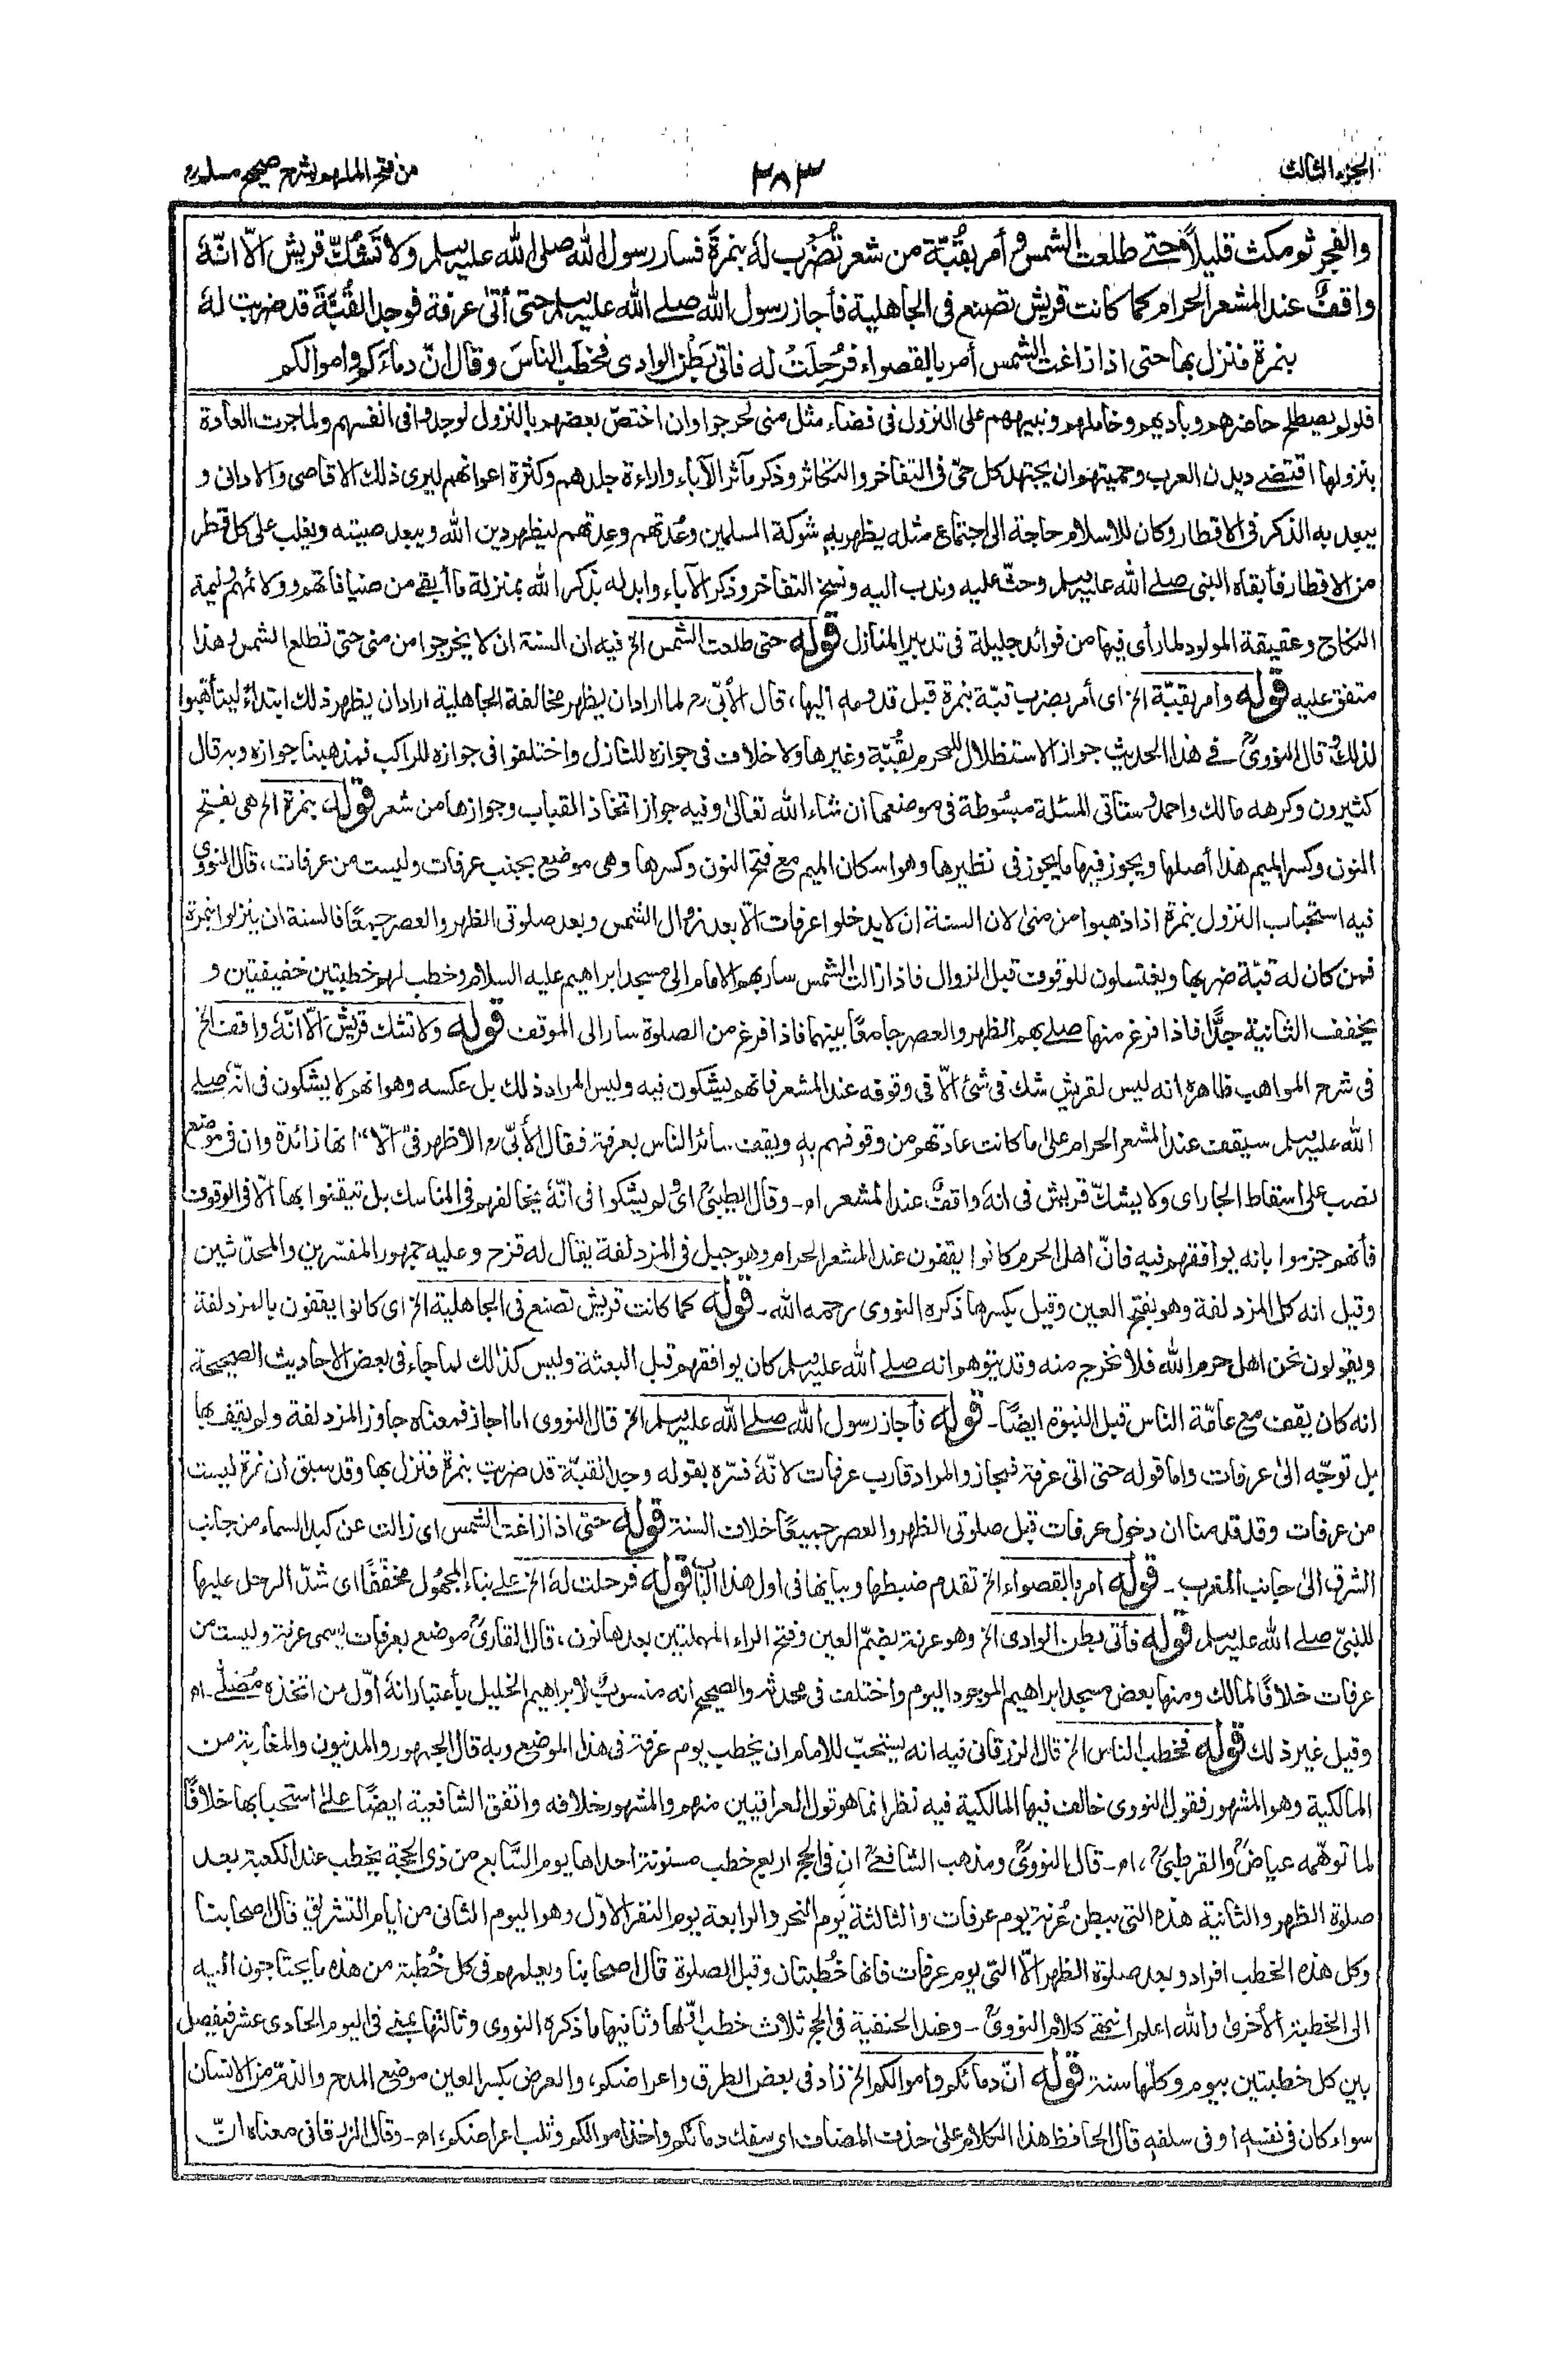 الجزء الثالث
٣٨٣
من فتح الملهم بشرح صحيح مسلم
والفجر ثم مكث قليلاً حتى طلعت الشمس وأمر بقُبّة من شعر تُضْرَب لهٗ بنمرةَ فسار رسول الله صلى الله عليه وسلم ولا تَشُكّ قريش الّا انّهٗ
واقفٌ عند المشعر الحرام كما كانت قريش تصنع فى الجاهلية فأجاز رسول الله صلے الله عليه وسلم حتى أتىٰ عرفة فوجد القُبَّةَ قد ضربت لهٗ
بنمرة فنزل بها حتى اذا زاغت الشمس أمر بالقصواء فرُحِلَتْ له فاتى بَطْن الوادى فخطَبَ الناسَ وقال انّ دماءَكم واموالكم
فلو لم يصطلح حاضرهم وباديهم وخاملهم ونبيههم على النزول فى فضاء مثل منى لحرجوا وان اختصّ بعضهم بالنزول لوجدوا فى انفسهم ولما جرت العادة
بنزولها اقتضے ديدن العرب وحميتهم ان يجتهد كل حىّ فى التفاخر والتكاثر وذكر مآثر الآباء واراءة جلدهم وكثرة اعوانهم ليرى ذلك الاقاصى والادانى و
يبعد به الذكر فى الاقطار وكان للاسلام حاجة الى اجتماع مثله يظهر به شوكة المسلمين وعُدتهم وعِدتهم ليظهر دين الله ويبعد صيته ويغلب على كل قطر
من الاقطار فأبقاه النبى صلے الله عليه وسلم وحثّ عليه وندب اليه ونسخ التفاخر وذكر الآباء وابدله بذكر الله بمنزلة ما أبقے من ضيافاتهم وولائمهم وليمة
النكاح وعقيقة المولود لما رأى فيها من فوائد جليلة فى تدبير المنازل قوله حتى طلعت الشمس الخ فيه ان السنة ان لا يخرجوا من منى حتى تطلع الشمس وهذا
متفق عليه قوله وامر بقبّة الخ اى أمر بضرب قبّة بنمرة قبل قدومه اليها، قال الأبّى رح لما اراد ان يظهر مخالفة الجاهلية اراد ان يظهر ذلك ابتداءً ليتأهبوا
لذلك، قال النووىؒ فے هذا الحديث جواز الاستظلال للمحرم بقُبّة وغيرها ولا خلاف فى جوازه للنازل واختلفوا فى جوازه للراكب فمذهبنا جوازه وبه قال
كثيرون وكرهه مالك واحمد وستأتى المسئلة مبسُوطة فى موضعها ان شاء الله تعالىٰ وفيه جواز اتخاذ القباب وجوازها من شعر قوله بنمرة الخ هى بفتح
النون وكسر الميم هذا أصلها ويجوز فيها ما يجوز فى نظيرها وهو اسكان الميم مع فتح النون وكسرها وهى موضع بجنب عرفات وليست من عرفات، قال النووى
فيه استحباب النزول بنمرة اذا ذهبوا من منىٰ لان السنة ان لا يدخلوا عرفات الّا بعد زوال الشمس وبعد صلوتى الظهر والعصر جميعًا فالسنة ان ينزلوا بنمرة
فمن كان له قبّة ضربها ويغتسلون للوقوف قبل الزوال فاذا زالت الشمس سار بهم الامام الى مسجد ابراهيم عليه السلام وخطب لهم خطبتين خفيفتين و
يخفف الثانية جدًّا فاذا فرغ منها صلے بهم الظهر والعصر جامعًا بينهما فاذا فرغ من الصلوة سار الى الموقف قوله ولا تشك قريش الّا انّهٗ واقف الخ
فى شرح المواهب ظاهره انه ليس لقريش شك فى شئ الّا فى وقوفه عند المشعر فانهم يشكون فيه وليس المراد ذلك بل عكسه وهو انهم لا يشكون فى انّه صلے
الله عليه وسلم سيقف عند المشعر الحرام علىٰ ما كانت عادتهم من وقوفهم بهٖ ويقف سائر الناس بعرفة فقال الأبّى رح الاظهر فى "الّا" انها زائدة وان فى موضع
نصب على اسقاط الجار اى ولا يشكّ قريش فى انهٗ واقفٌ عند المشعر اه۔ وقال الطيبىؒ اى ولم يشكوا فى انّهٗ يخالفهم فى المناسك بل تيقنوا بها الّا فى الوقوف
فأنهم جزموا بانه يوافقهم فيه فانّ اهل الحرم كانوا يقفون عند المشعر الحرام وهو جبل فى المزدلفة يقال له قزح وعليه جمهور المفسّرين والمحدّثين
وقيل انه كل المزدلفة وهو بفتح العين وقيل بكسرها ذكره النووى رحمه الله۔ قوله كما كانت قريش تصنع فى الجاهلية الخ اى كانوا يقفون بالمزدلفة
ويقولون نحن اهل حرم الله فلا نخرج منه وقد يتوهم انه صلے الله عليه وسلم كان يوافقهم قبل البعثة وليس كذالك لما جاء فى بعض الاحاديث الصحيحة
انه كان يقف مع عامّة الناس قبل النبوة ايضًا۔ قوله فأجاز رسول الله صلے الله عليه وسلم الخ قال النووى اما اجاز فمعناه جاوز المزدلفة ولم يقف بها
بل توجّه الىٰ عرفات واما قوله حتى اتى عرفة فمجاز والمراد قارب عرفات لانّهٗ فسّره بقوله وجد القبّة قد ضربت بنمرة فنزل بها وقد سبق ان نمرة ليست
من عرفات وقد قدمنا ان دخول عرفات قبل صلوتى الظهر والعصر جميعًا خلاف السنة قوله حتى اذا زاغت الشمس اى زالت عن كبد السماء من جانب
الشرق الىٰ جانب المغرب۔ قوله امر بالقصواء الخ تقدم ضبطها وبيانها فى اول هذا الباب قوله فرحلت لهٗ الخ علے بناء المجهول مخففًا اى شدّ الرحل عليها
للنبىّ صلے الله عليه وسلم قوله فأتى بطن الوادى الخ وهو عرنة بضمّ العين وفتح الراء المهملتين بعدها نون، قال القارىؒ موضع بعرفات يسمى عرنة وليست من
عرفات خلافًا لمالك ومنها بعض مسجد ابراهيم الموجود اليوم واختلف فى محدثه والصحيح انه منسوبٌ لابراهيم الخليل بأعتبار انهٗ أوّل من اتخذه مُصلّٰے۔ اه
وقيل غير ذلك قوله فخطب الناس الخ قال الزرقانى فيه انه يستحبّ للامام ان يخطب يوم عرفة فى هذا الموضع وبه قال الجمهور والمدنيون والمغاربة من
المالكية وهو المشهور فقول النووى خالف فيها المالكية فيه نظر انما هو قول العراقيين منهم والمشهور خلافه واتفق الشافعية ايضًا علےٰ استحبابها خلافًا
لما توهّمه عياضؒ والقرطبىؒ، اه۔ قال النووىؒ ومذهب الشافعےؒ ان فى الحج اربع خطب مسنونة احداها يوم السّابع من ذى الحجة يخطب عند الكعبة بعد
صلوة الظهر والثانية هذه التى ببطن عُرنة يوم عرفات والثالثة يوم النحر والرابعة يوم النفر الاوّل وهو اليوم الثانى من ايام التشريق قال اصحابنا
وكل هذه الخطب افراد وبعد صلوة الظهر الّا التى يوم عرفات فانها خُطبتان وقبل الصلوة قال اصحابنا ويعلمهم فى كل خُطبة من هذه ما يحتاجون اليه
الى الخطبة الأخرىٰ والله اعلم انتهےٰ كلام النووىؒ۔ وعند الحنفية فى الحج ثلاث خطب اوّلها وثانيها ما ذكره النووى وثالثها بمنےٰ فى اليوم الحادى عشر فيفصل
بين كل خطبتين بيوم وكلّها سنة قوله انّ دمائكم وأموالكم الخ زاد فى بعض الطرق واعراضكم، والعرض بكسر العين موضع المدح والذمّ من الانسان
سواء كان فى نفسهٖ او فى سلفهٖ قال الحافظ هذا الكلام علىٰ حذف المضاف اى سفك دمائكم واخذ اموالكم وثلب اعراضكم، اه۔ وقال الزرقانى معناه انّ